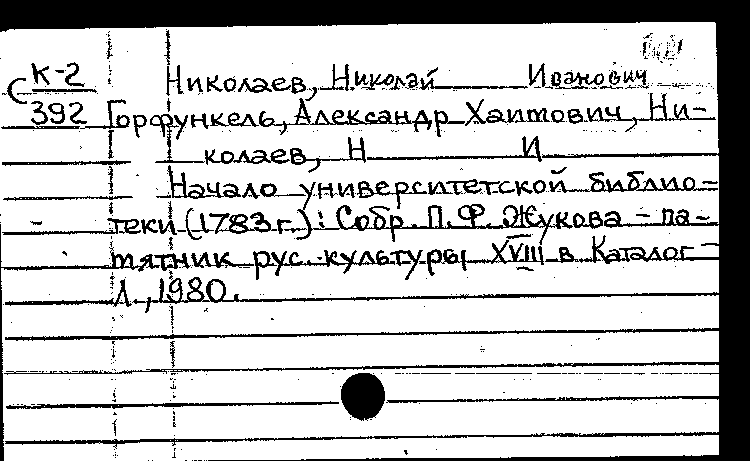 С К-2
392
Николаев, Николай Иванович
Горфункель, Александр Хаимович, Ни-
колаев, Н И
Начало университетской библио-
теки (1783 г.): Собр. П. Ф. Жукова - па-
мятник рус. культуры XVIII в Каталог -
Л, 1980.